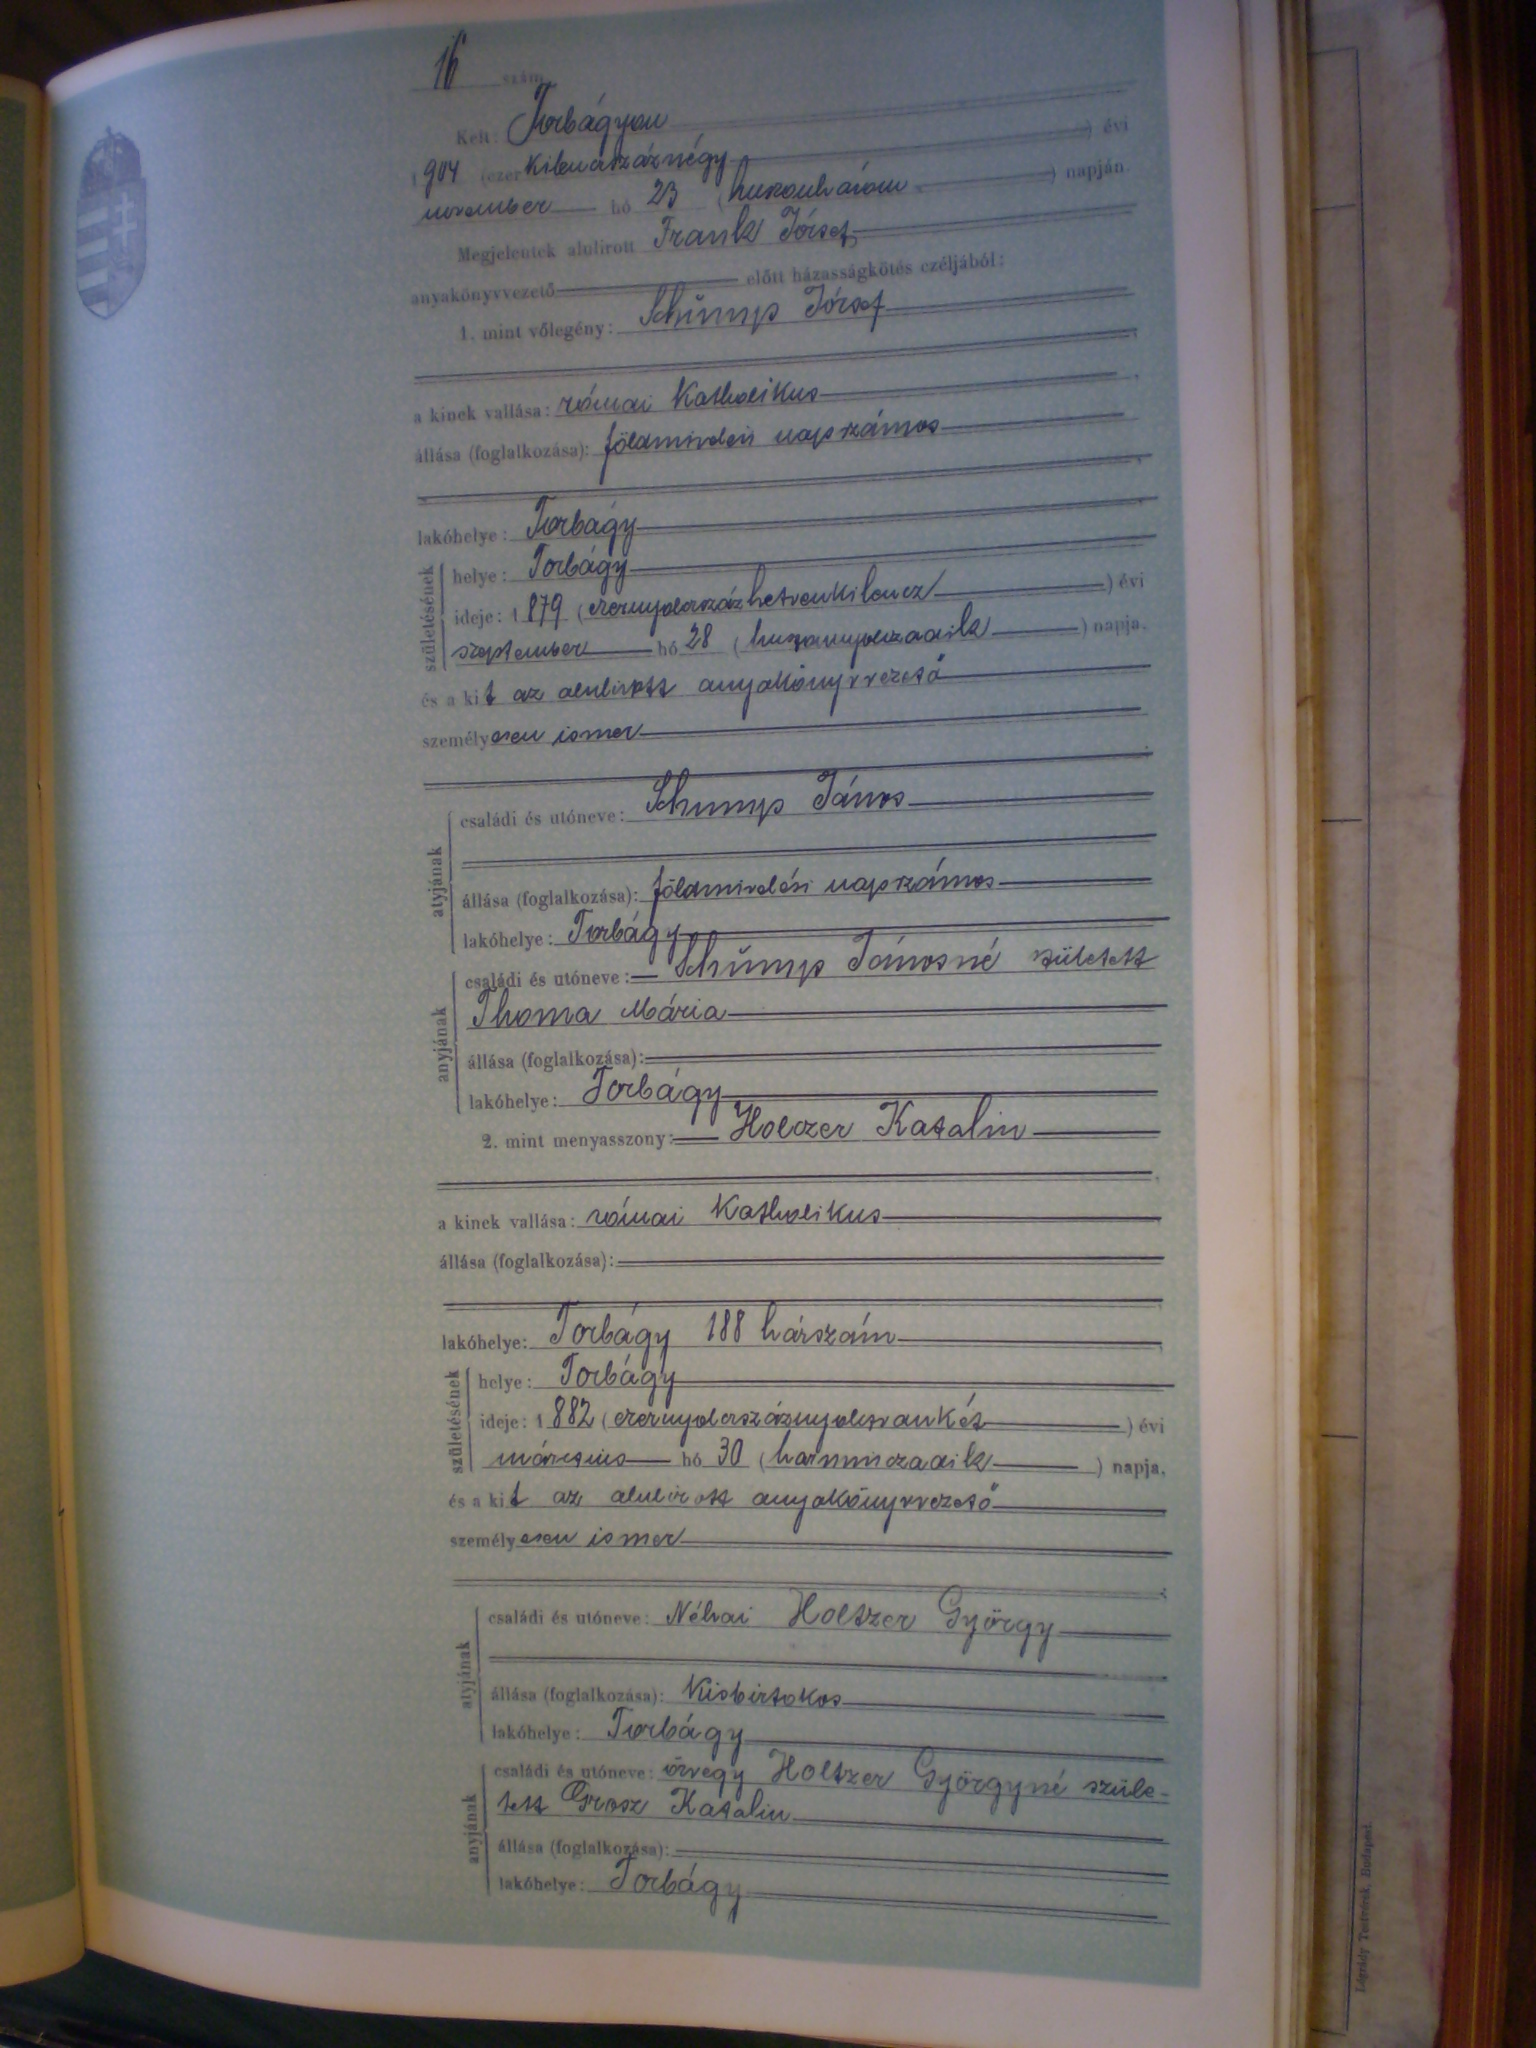 16 szám
Kelt: Torbágyon
1904 (ezer kilenczszáznégy ) évi
november hó 23 (huszonhárom ) napján.
Megjelentek alulirott Frank József
anyakönyvvezető előtt házasságkötés czéljából:
1. mint vőlegény: Schümp József
a kinek vallása: római katholikus
állása (foglalkozása): földmivelési napszámos
lakóhelye: Torbágy
születésének
helye: Torbágy
ideje: 1879 (ezernyolczszázhetvenkilencz ) évi
szeptember hó 28 (huszonnyolczadik ) napja,
és a kit az alulirott anyakönyvvezető
személyesen ismer
atyjának
családi és utóneve: Schump János
állása (foglalkozása): földmivelési napszámos
lakóhelye: Torbágy
anyjának
családi és utóneve: Schümp Jánosné született
Thoma Mária
állása (foglalkozása):
lakóhelye: Torbágy
2. mint menyasszony: Holczer Katalin
a kinek vallása: római katholikus
állása (foglalkozása):
lakóhelye: Torbágy 188 házszám
születésének
helye: Torbágy
ideje: 1882 (ezernyolczszáznyolczvankét ) évi
márczius hó 30 (harminczadik ) napja,
és a kit az alulirott anyakönyvvezető
személyesen ismer
atyjának
családi és utóneve: Néhai Holtzer György
állása (foglalkozása): kisbirtokos
lakóhelye: Torbágy
anyjának
családi és utóneve: özvegy Holtzer Györgyné szüle-
tett Grosz Katalin
állása (foglalkozása):
lakóhelye: Torbágy
Légrády Testvérek, Budapest.